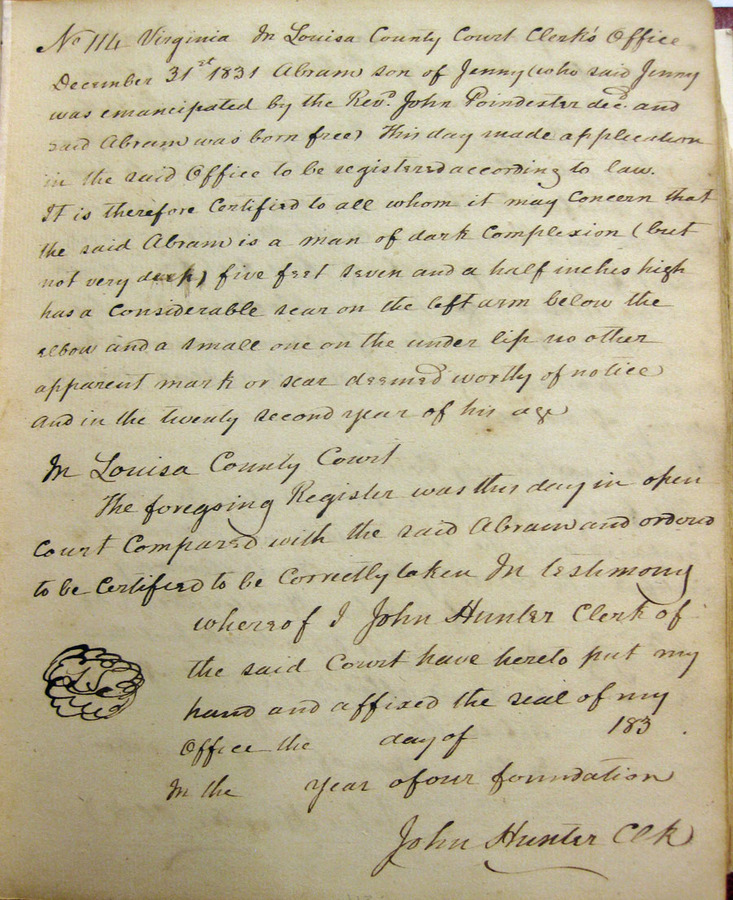 No 114 Virginia In Louisa County Court Clerk's Office
December 31st 1831 Abram son of Jenny (who said Jenny
was emancipated by the Revd. John Poindexter decd. and
said Abram was born free) This day made application
in the said Office to be registered according to law.
It is therefore Certified to all whom it may Concern that
the said Abram is a man of dark Complexion (but
not very dark) five feet seven and a half inches high
has a Considerable scar on the left arm below the
elbow and a small one on the under lip no other
apparent mark or scar deemed worthy of notice
and in the twenty second year of his age
In Louisa County Court
The foregoing Register was this day in open
Court Compared with the said Abram and ordered
to be Certified to be Correctly taken In testimony
whereof I John Hunter Clerk of
the said Court have hereto put my
hand and affixed the seal of my
Office the day of 183 .
In the year of our foundation
LS
John Hunter Clk